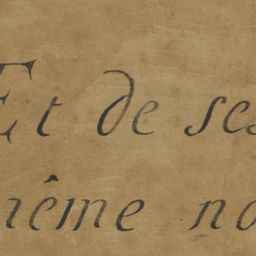 Et de ses
ième no